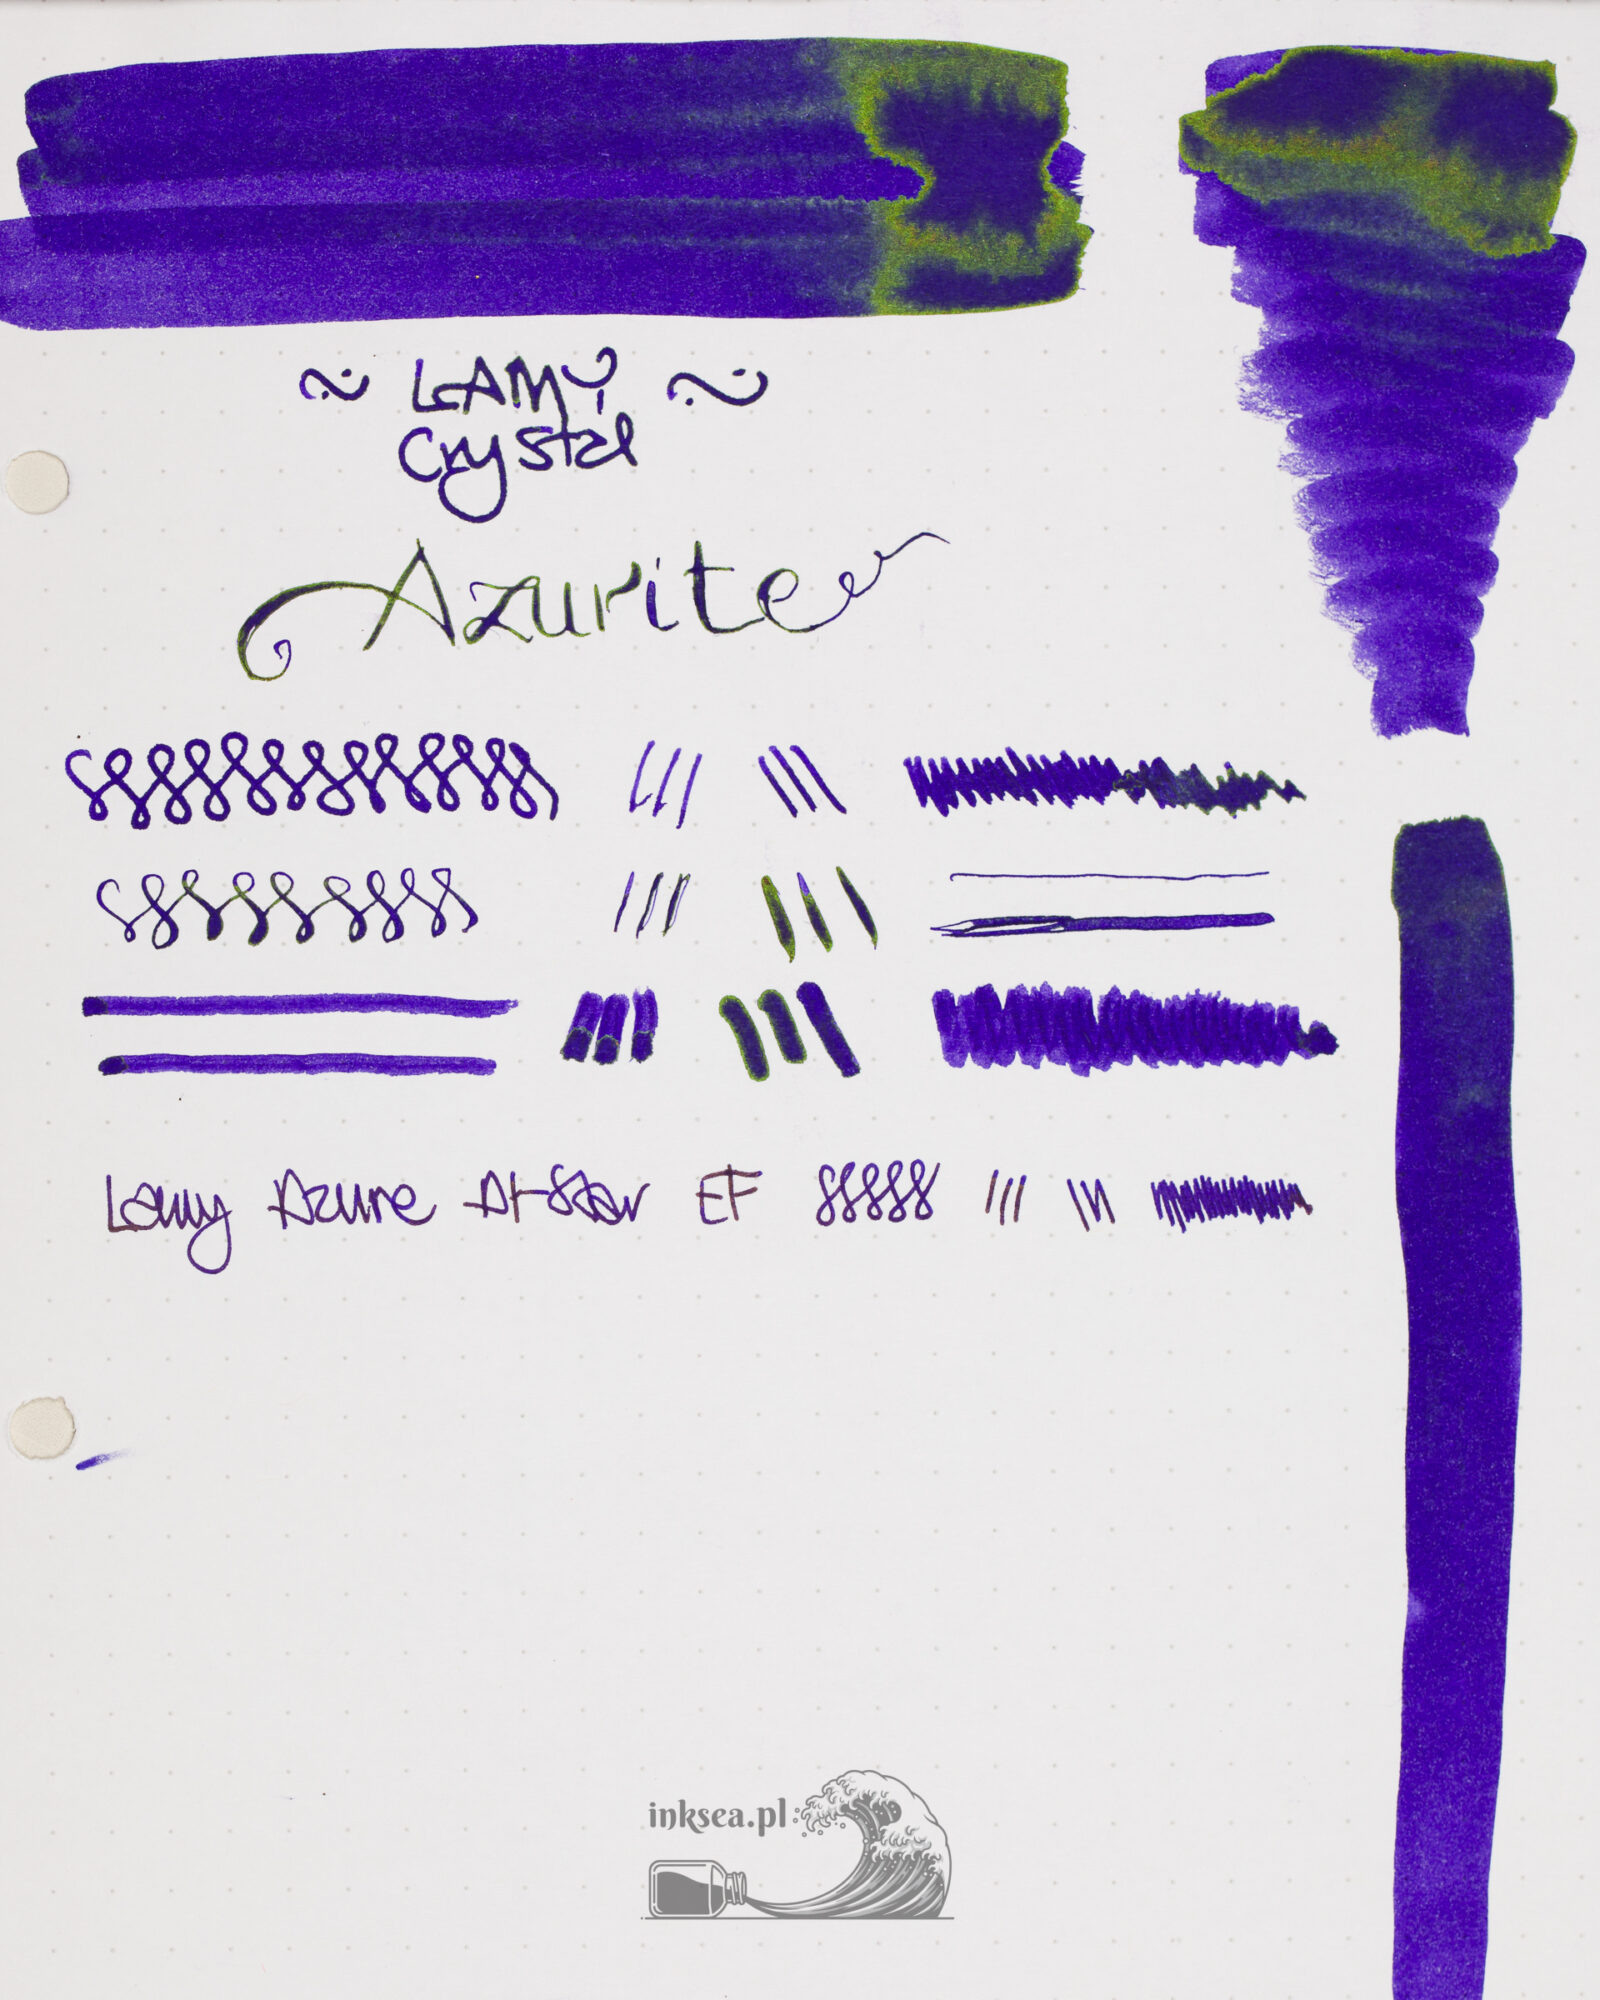 ~ LAMY ~
Crystal
Azurite
Lamy Azure Al-Star EF
inksea.pl